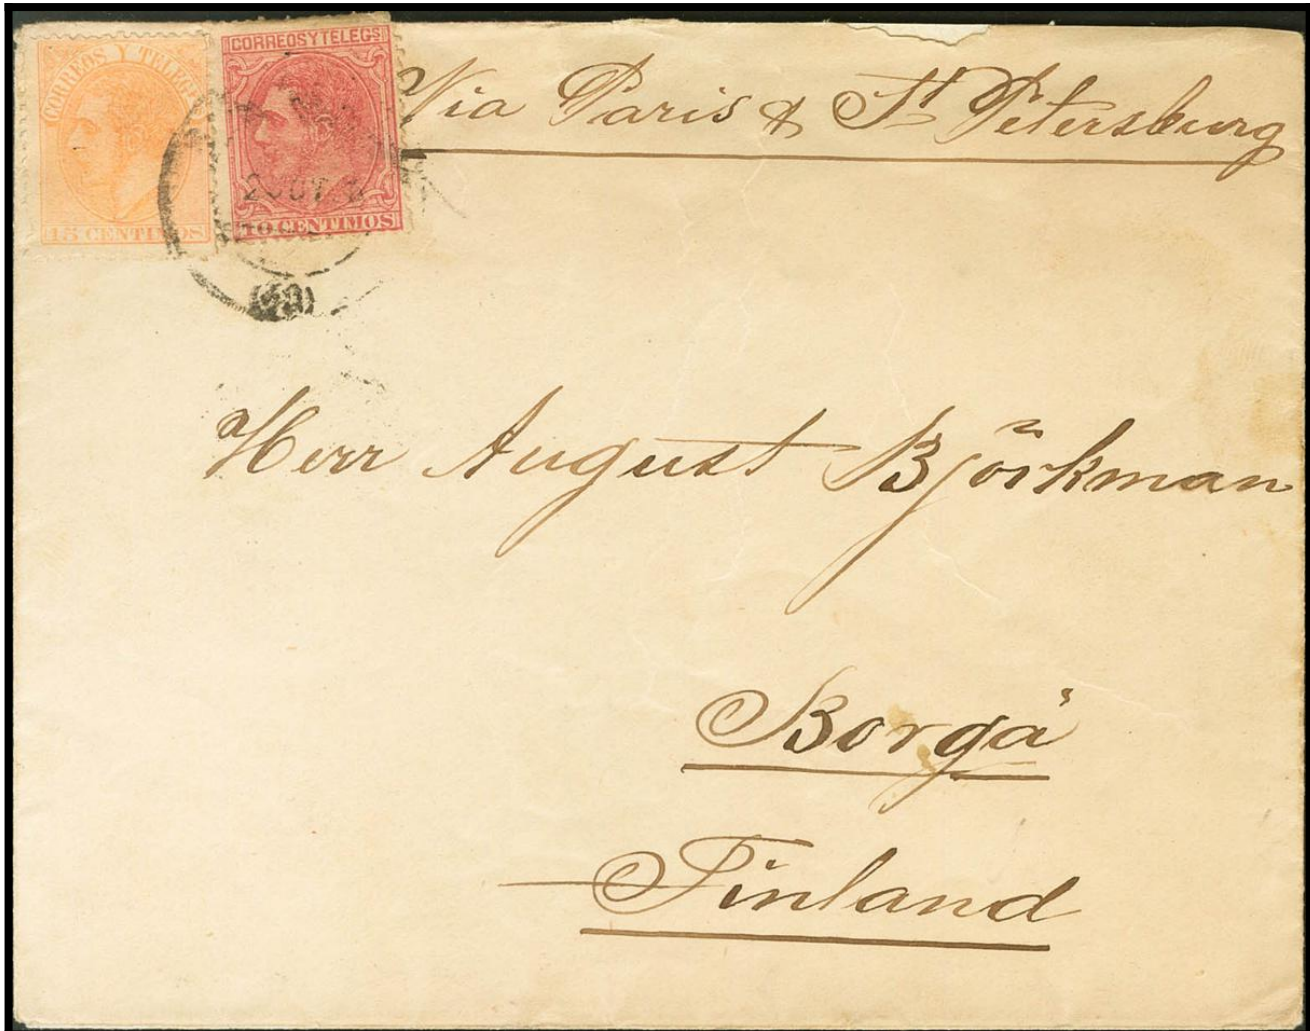 CORREOS Y TELEGS
15 CENTIMOS
CORREOS Y TELEGS
10 CENTIMOS
Via Paris & St Petersburg
Herr August Björkman
Borgå
Finland